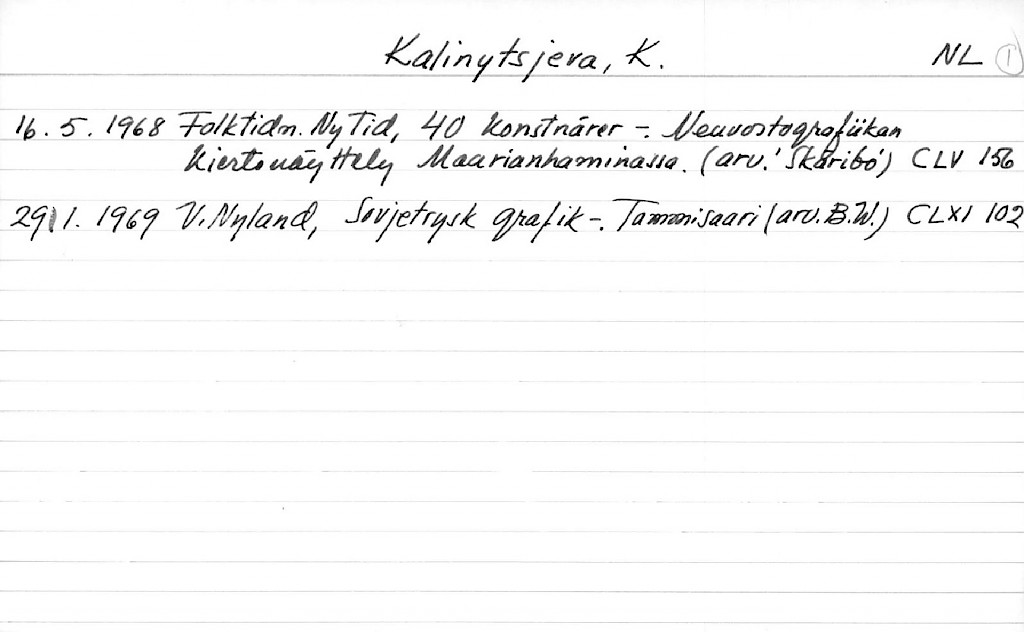 Kalinytsjeva, K. NL 1
16. 5. 1968 Folktidn. Ny Tid, 40 konstnärer -. Neuvostografiikan
kiertonäyttely Maarianhaminassa. (arv. 'Skäribo') CLV 156
29/1. 1969 V. Nyland, Sovjetrysk grafik -. Tammisaari (arv. B.W.) CLXI 102